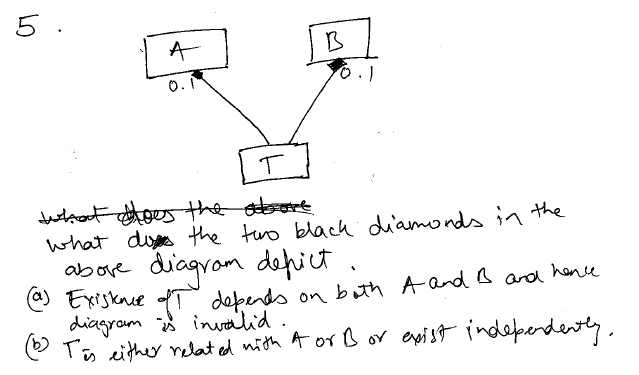 5.
A
B
0.1
0.1
T
what does the above
what does the two black diamonds in the
above diagram depict.
(a) Existence of T depends on both A and B and hence
diagram is invalid.
(b) T is either related with A or B or exist independently.